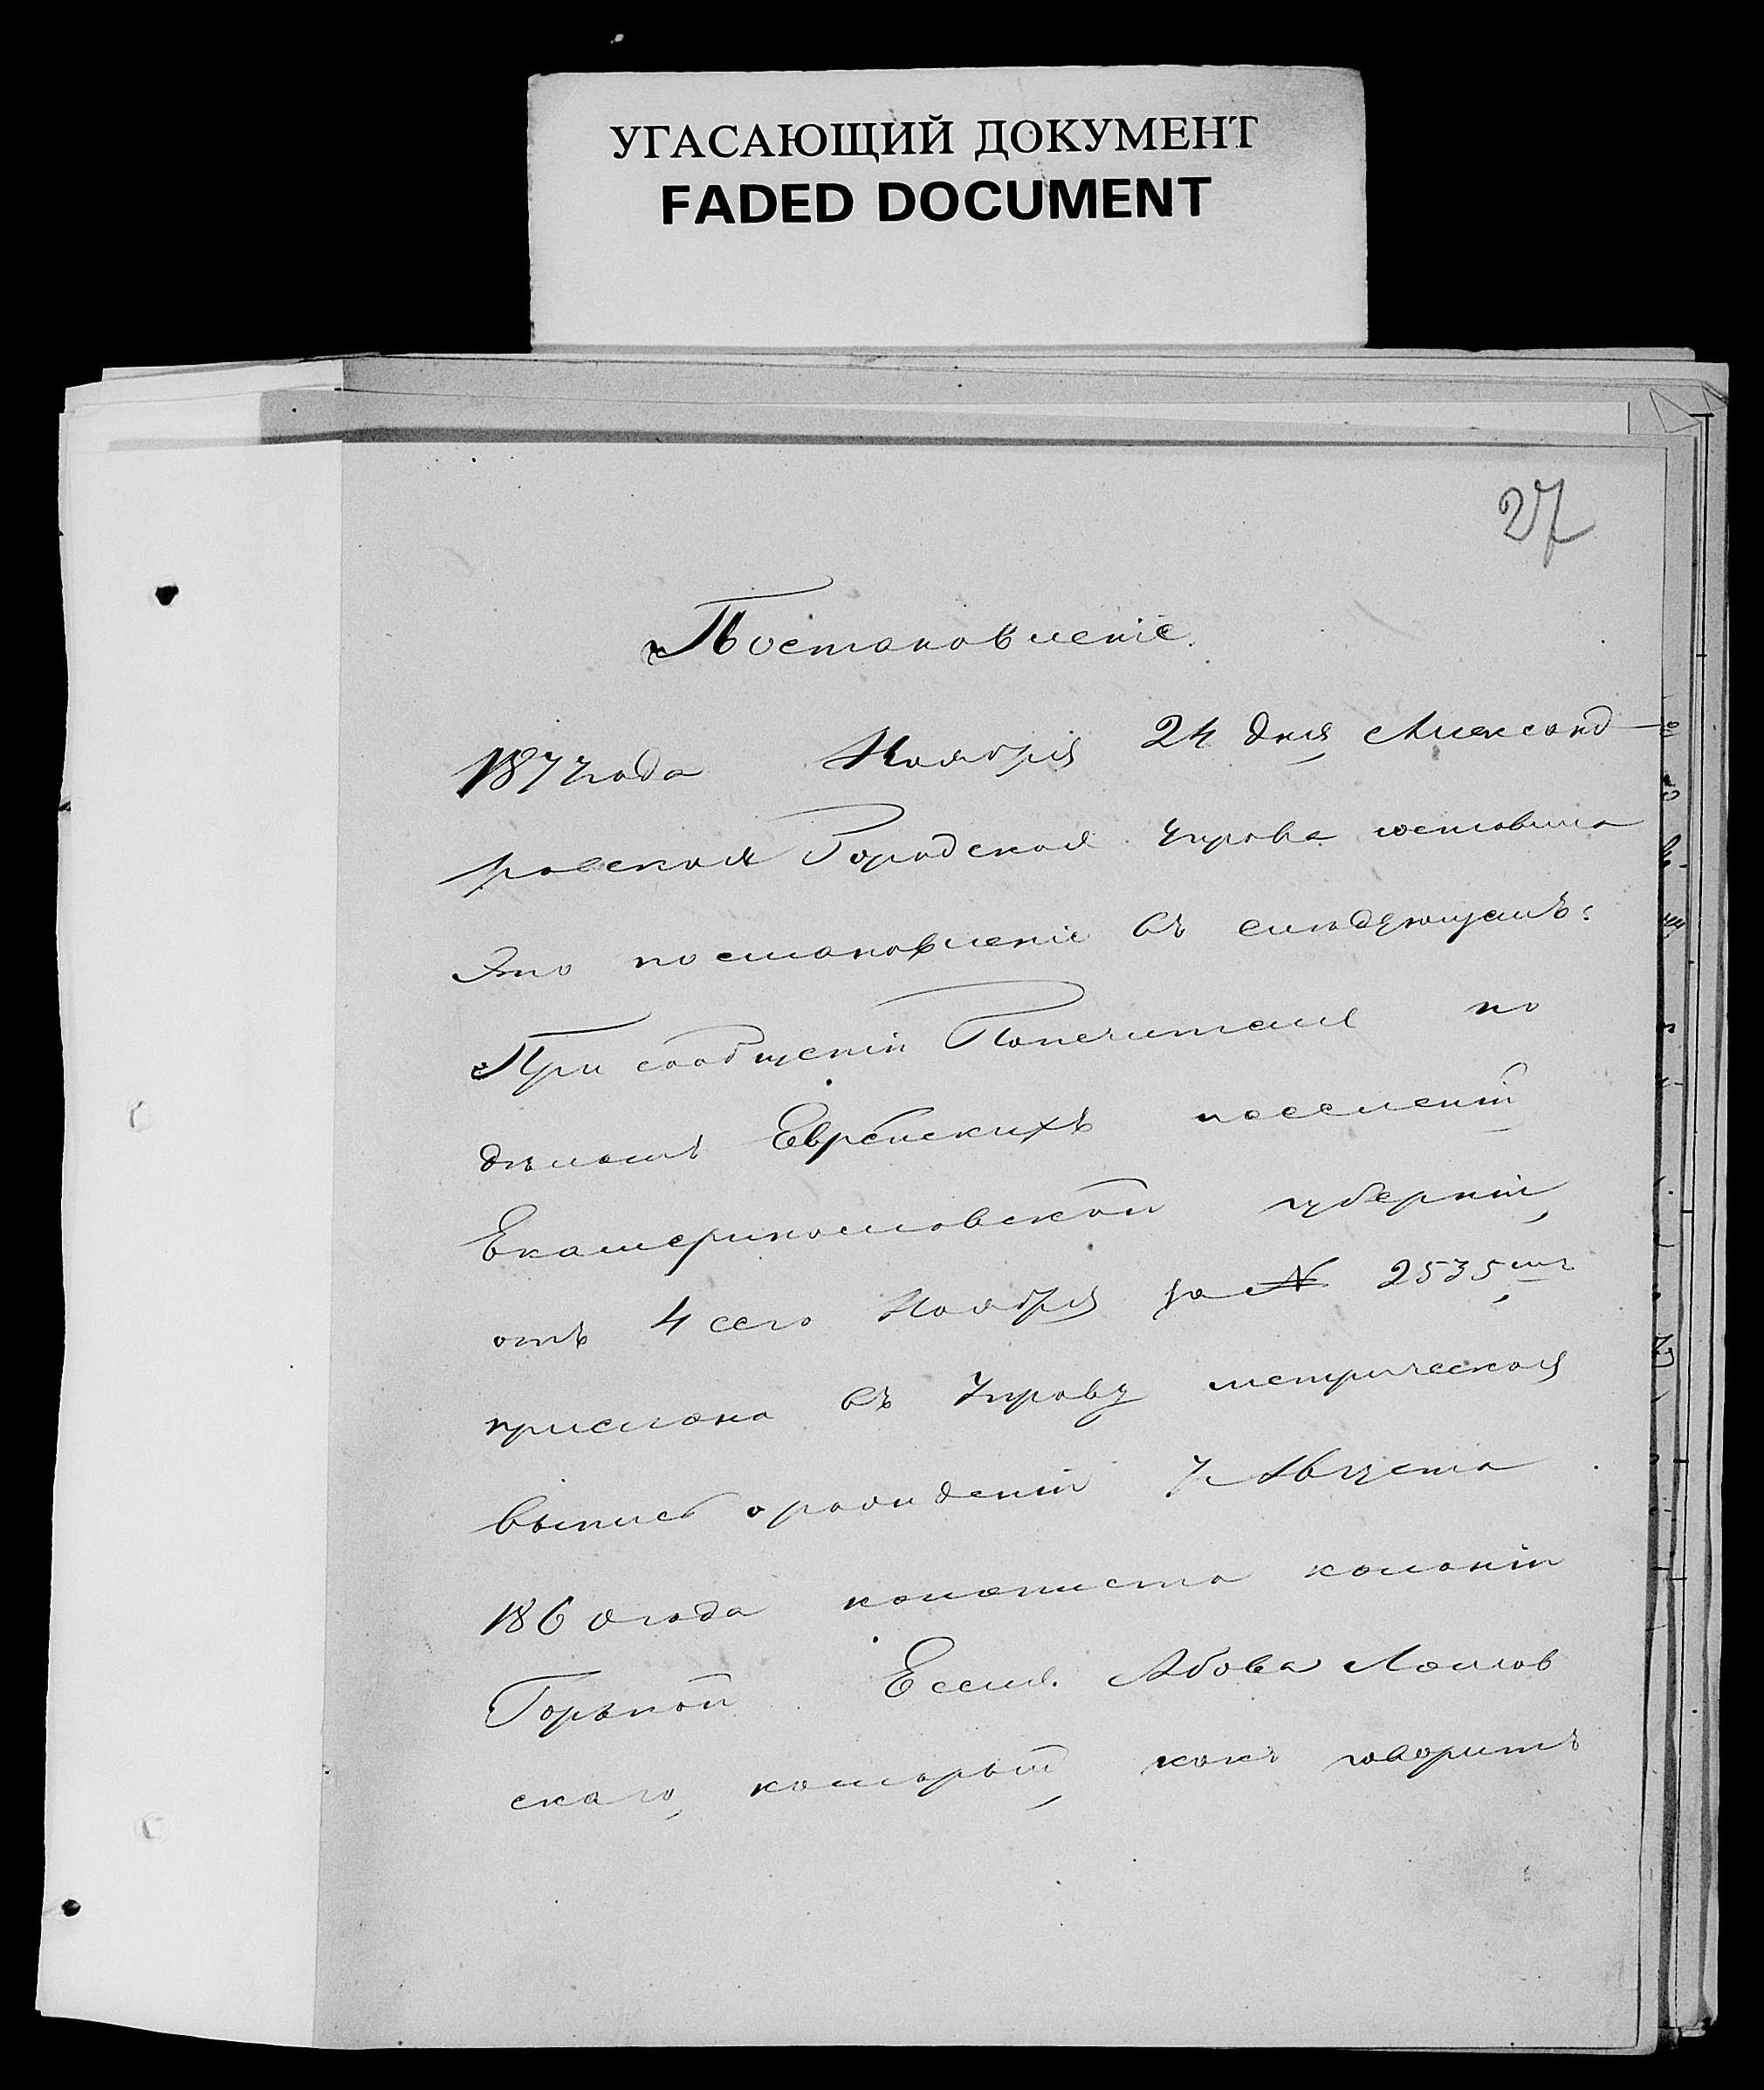 УГАСАЮЩИЙ ДОКУМЕНТ
FADED DOCUMENT
27
Постановленіе.
1877 года Ноября 24 дня, Александ-
ровская Городская Управа составила
это постановленіе въ слѣдующемъ:
При сообщеніи Попечителя по
дѣламъ Еврейскихъ поселеній
Екатеринославской губерніи,
отъ 4 сего Ноября за № 2535,
прислана въ Управу метрическая
выпись о рожденіи 7 Августа
1860 года колониста колоніи
Горькой Еселя Абова
скаго, который, какъ говоритъ